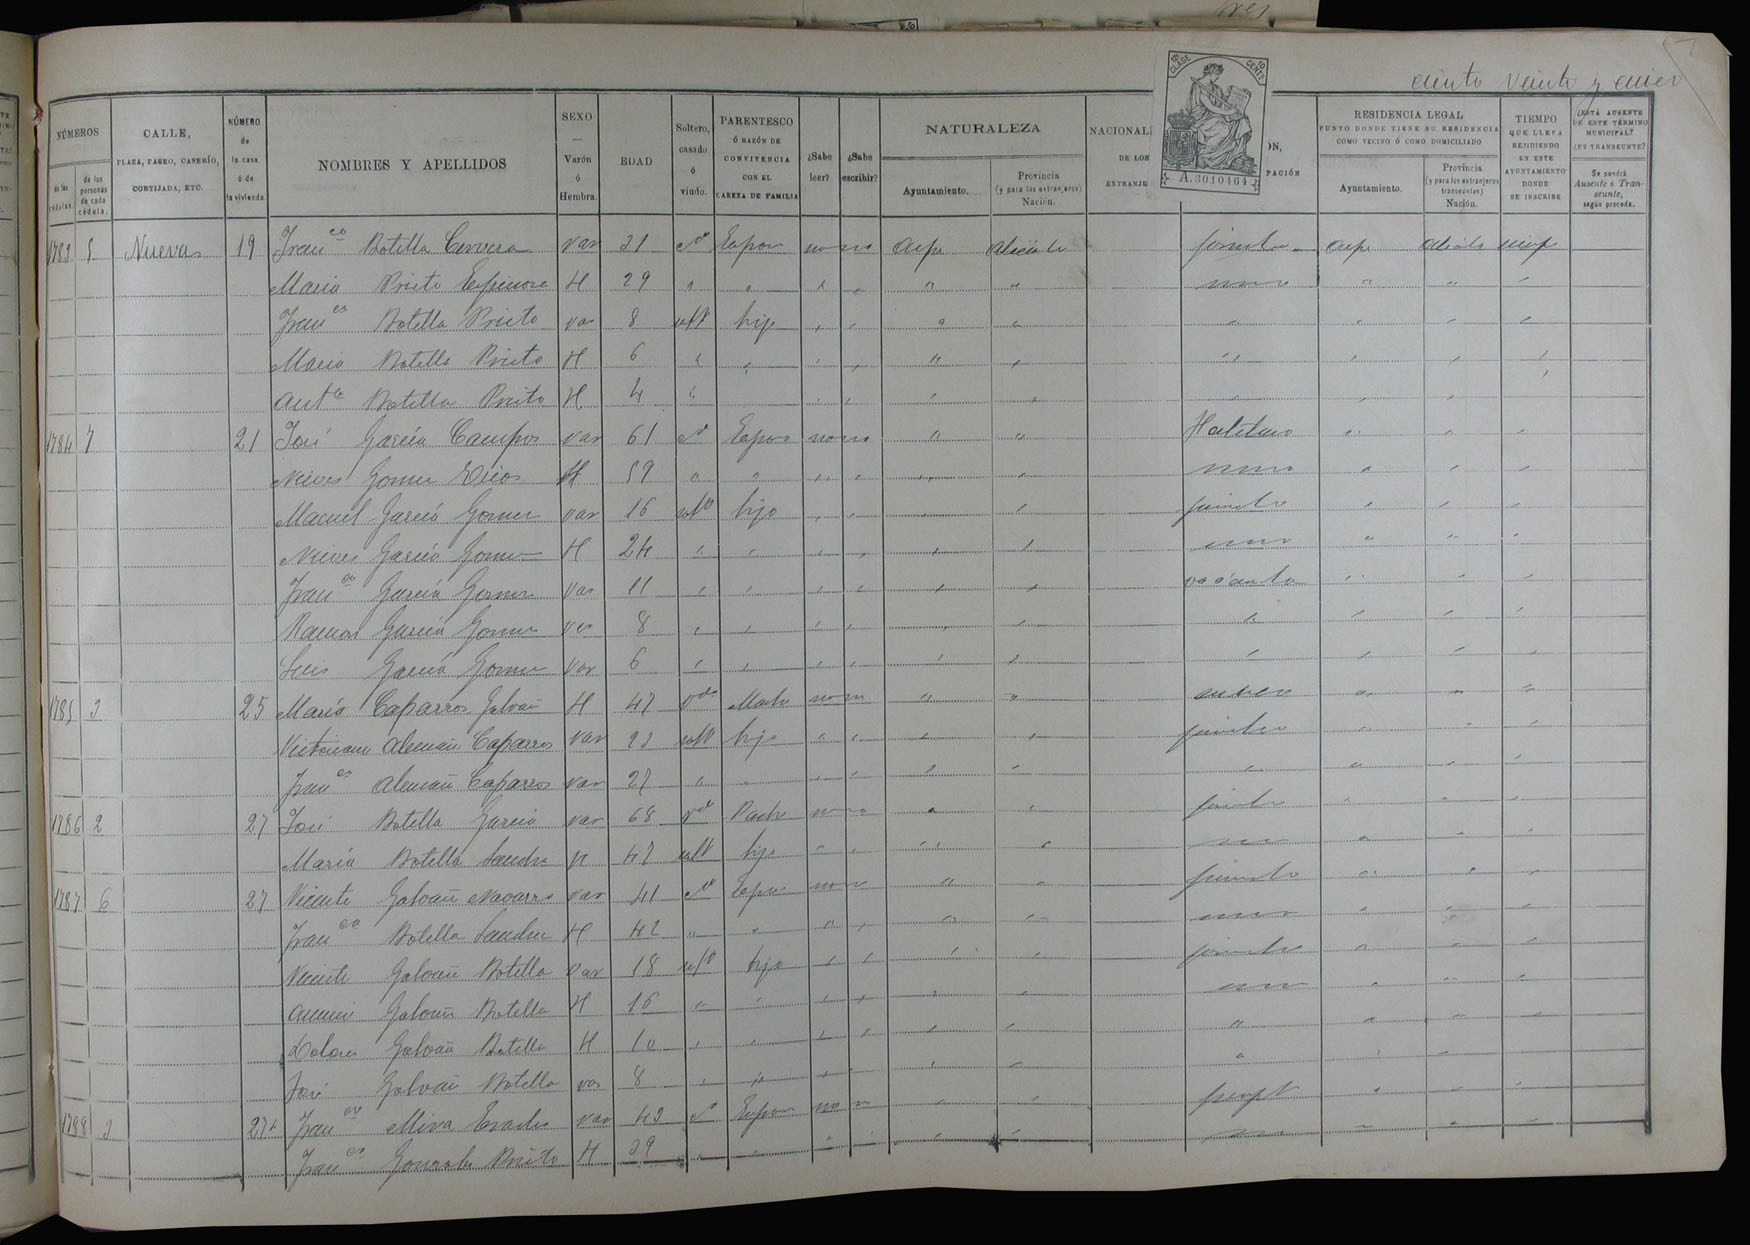 ciento veinte y cinco
18 CLASE 10 CENTS
A.3010464
NÚMEROS
de las cédulas.
de las personas de cada cédula.
CALLE,
PLAZA, PASEO, CASERÍO,
CORTIJADA, ETC.
NÚMERO
de
la casa
ó de
la vivienda.
NOMBRES Y APELLIDOS
SEXO
—
Varón
ó
Hembra.
EDAD
Soltero,
casado
ó
viudo.
PARENTESCO
Ó RAZÓN DE
CONVIVENCIA
CON EL
CABEZA DE FAMILIA
¿Sabe
leer?
¿Sabe
escribir?
NATURALEZA
Ayuntamiento.
Provincia
(y para los extranjeros)
Nación.
NACIONALI
DE LOS
EXTRANJE
ÓN,
PACIÓN
RESIDENCIA LEGAL
PUNTO DONDE TIENE SU RESIDENCIA
COMO VECINO Ó COMO DOMICILIADO
Ayuntamiento.
Provincia
(y para los extranjeros
transeuntes)
Nación.
TIEMPO
QUE LLEVA
RESIDIENDO
EN ESTE
AYUNTAMIENTO
DONDE
SE INSCRIBE
¿ESTÁ AUSENTE
DE ESTE TÉRMINO
MUNICIPAL?
¿ES TRANSEUNTE?
Se pondrá
Ausente ó Tran-
seunte,
según proceda.
1783 5 Nueva 19 Franco Botella Cervera var 31 cdo Espos no no Aspe Alicante Aspe Alicante siemp
Maria Prieto Espinosa H 29 " "
Franco Botella Prieto var 8 solt hijo
Maria Botella Prieto H 6
Anta Botella Prieto H 4
1784 7 21 José García Campos var 61 cdo Espos no no
Nieves Gomez H 59
Manuel García Gomez var 16 solto hijo
Nieves García Gomez H 24
Franco García Gomez var 11
Ramon García Gomez var 8
Luis García Gomez var 6
1785 3 25 María Caparros Galvañ H 47 vda Madre no no
Alemañ Caparros var 23 solt hijo
Franco Alemañ Caparros var 27
1786 2 27 José Botella García var 68 vdo Padre no no
María Botella Sanchez H 47 solt hija
1787 6 27 Vicente Galvañ Navarro var 41 cdo Espos no no
Franca Botella Sanchez H 42
Vicente Galvañ Botella var 18 solt hijo
Galvañ Botella H 16
Dolores Galvañ Botella H 10
José Galvañ Botella var 8
1788 3 Franco Mira var 43 cdo Espos no no
Franca Gonzalez Prieto H 39